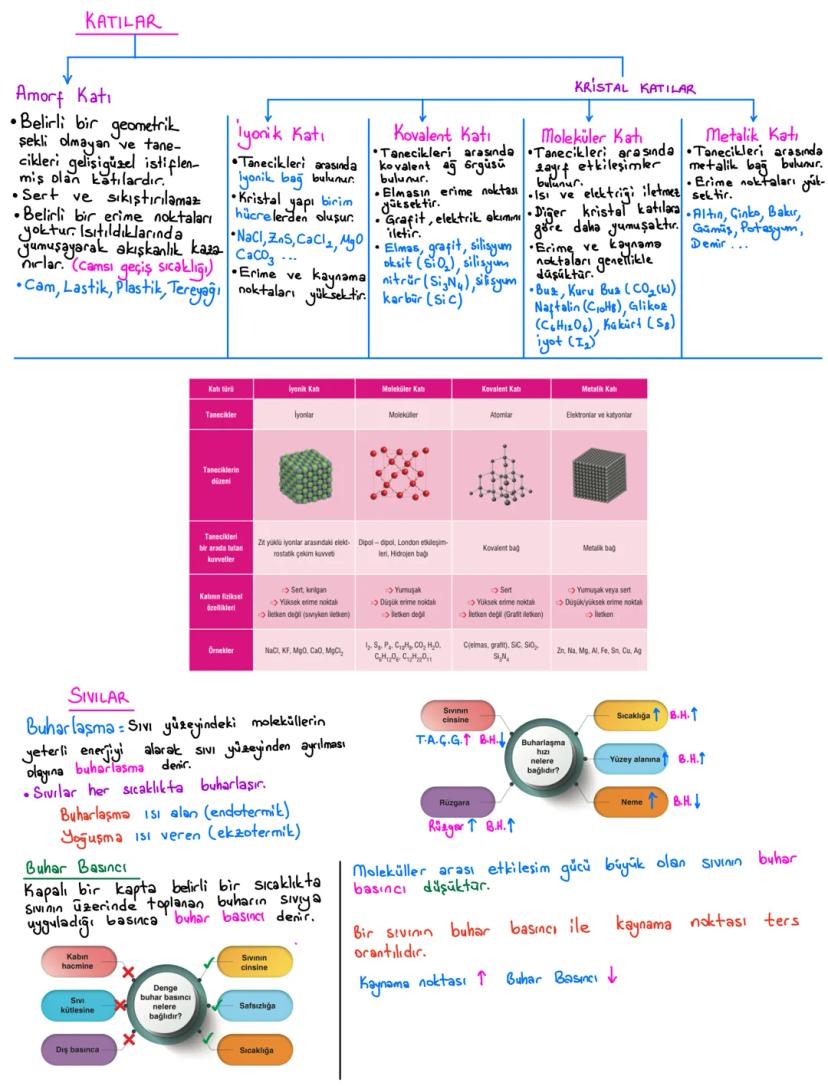 KATILAR
KRİSTAL KATILAR
Amorf Katı
• Belirli bir geometrik
şekli olmayan ve tane-
cikleri gelişigüzel istiflen-
miş olan katılardır.
• Sert ve sıkıştırılamaz
• Belirli bir erime noktaları
yoktur. Isıtıldıklarında
yumuşayarak akışkanlık kaza-
nırlar. (camsı geçiş sıcaklığı)
• Cam, Lastik, Plastik, Tereyağı
İyonik Katı
• Tanecikleri arasında
iyonik bağ bulunur.
• Kristal yapı birim
hücrelerden oluşur.
• NaCl, ZnS, CaCl₂, MgO
CaCO₃ ...
• Erime ve kaynama
noktaları yüksektir.
Kovalent Katı
• Tanecikleri arasında
kovalent ağ örgüsü
bulunur.
• Elmasın erime noktası
yüksektir.
• Grafit, elektrik akımını
iletir.
• Elmas, grafit, silisyum
oksit (SiO₂), silisyum
nitrür (Si₃N₄), silisyum
karbür (SiC)
Moleküler Katı
• Tanecikleri arasında
zayıf etkileşimler
bulunur.
• Isı ve elektriği iletmez
• Diğer kristal katılara
göre daha yumuşaktır.
• Erime ve kaynama
noktaları genellikle
düşüktür.
• Buz, Kuru Buz (CO₂(k))
Naftalin (C₁₀H₈), Glikoz
(C₆H₁₂O₆), Kükürt (S₈)
iyot (I₂)
Metalik Katı
• Tanecikleri arasında
metalik bağ bulunur.
• Erime noktaları yük-
sektir.
• Altın, Çinko, Bakır,
Gümüş, Potasyum,
Demir ...
Katı türü İyonik Katı Moleküler Katı Kovalent Katı Metalik Katı
Tanecikler İyonlar Moleküller Atomlar Elektronlar ve katyonlar
Taneciklerin
düzeni
Tanecikleri
bir arada tutan
kuvvetler
Zıt yüklü iyonlar arasındaki elekt-
rostatik çekim kuvveti
Dipol – dipol, London etkileşim-
leri, Hidrojen bağı
Kovalent bağ
Metalik bağ
Katının fiziksel
özellikleri
⇨ Sert, kırılgan
⇨ Yüksek erime noktalı
⇨ İletken değil (sıvıyken iletken)
⇨ Yumuşak
⇨ Düşük erime noktalı
⇨ İletken değil
⇨ Sert
⇨ Yüksek erime noktalı
⇨ İletken değil (Grafit iletken)
⇨ Yumuşak veya sert
⇨ Düşük/yüksek erime noktalı
⇨ İletken
Örnekler
NaCl, KF, MgO, CaO, MgCl₂
I₂, S₈, P₄, C₁₀H₈, CO₂ H₂O,
C₆H₁₂O₆, C₁₂H₂₂O₁₁
C(elmas, grafit), SiC, SiO₂,
Si₃N₄
Zn, Na, Mg, Al, Fe, Sn, Cu, Ag
SIVILAR
Buharlaşma = Sıvı yüzeyindeki moleküllerin
yeterli enerjiyi alarak sıvı yüzeyinden ayrılması
olayına buharlaşma denir.
• Sıvılar her sıcaklıkta buharlaşır.
Buharlaşma ısı alan (endotermik)
Yoğuşma ısı veren (ekzotermik)
Sıvının
cinsine
T.A.Ç.G.↑ B.H.↓
Rüzgara
Rüzgar ↑ B.H.↑
Buharlaşma
hızı
nelere
bağlıdır?
Sıcaklığa ↑ B.H.↑
Yüzey alanına ↑ B.H.↑
Neme ↑ B.H.↓
Buhar Basıncı
Kapalı bir kapta belirli bir sıcaklıkta
sıvının üzerinde toplanan buharın sıvıya
uyguladığı basınca buhar basıncı denir.
Kabın
hacmine
Sıvı
kütlesine
Dış basınca
Denge
buhar basıncı
nelere
bağlıdır?
Sıvının
cinsine
Safsızlığa
Sıcaklığa
Moleküller arası etkileşim gücü büyük olan sıvının buhar
basıncı düşüktür.
Bir sıvının buhar basıncı ile kaynama noktası ters
orantılıdır.
Kaynama noktası ↑ Buhar Basıncı ↓